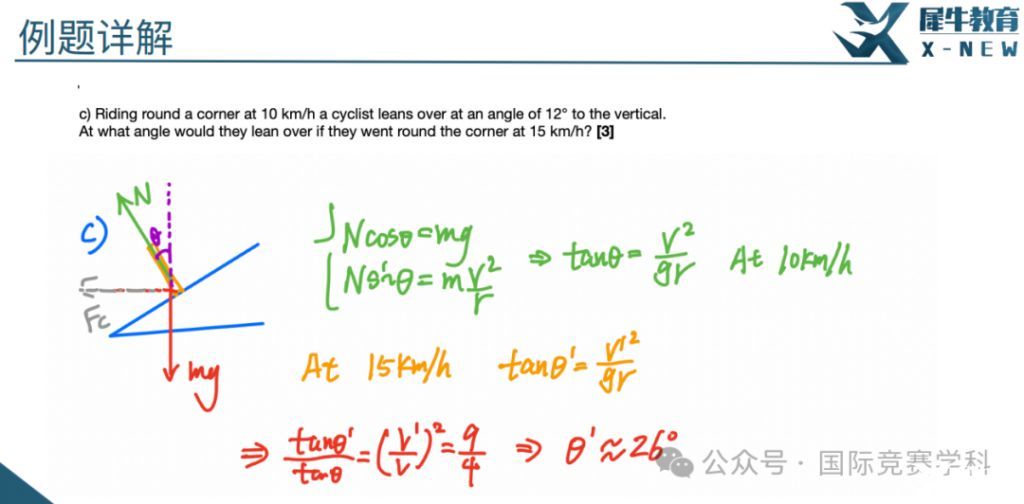 例题详解
犀牛教育
X-NEW
c) Riding round a corner at 10 km/h a cyclist leans over at an angle of 12° to the vertical.
At what angle would they lean over if they went round the corner at 15 km/h? [3]
c)
N
θ
Fc
mg
Ncosθ=mg
Nsinθ=m v²/r
⇒ tanθ= v²/gr At 10km/h
At 15km/h tanθ'= v'²/gr
⇒ tanθ'/tanθ=(v'/v)²=9/4 ⇒ θ'≈26°
公众号·国际竞赛学科